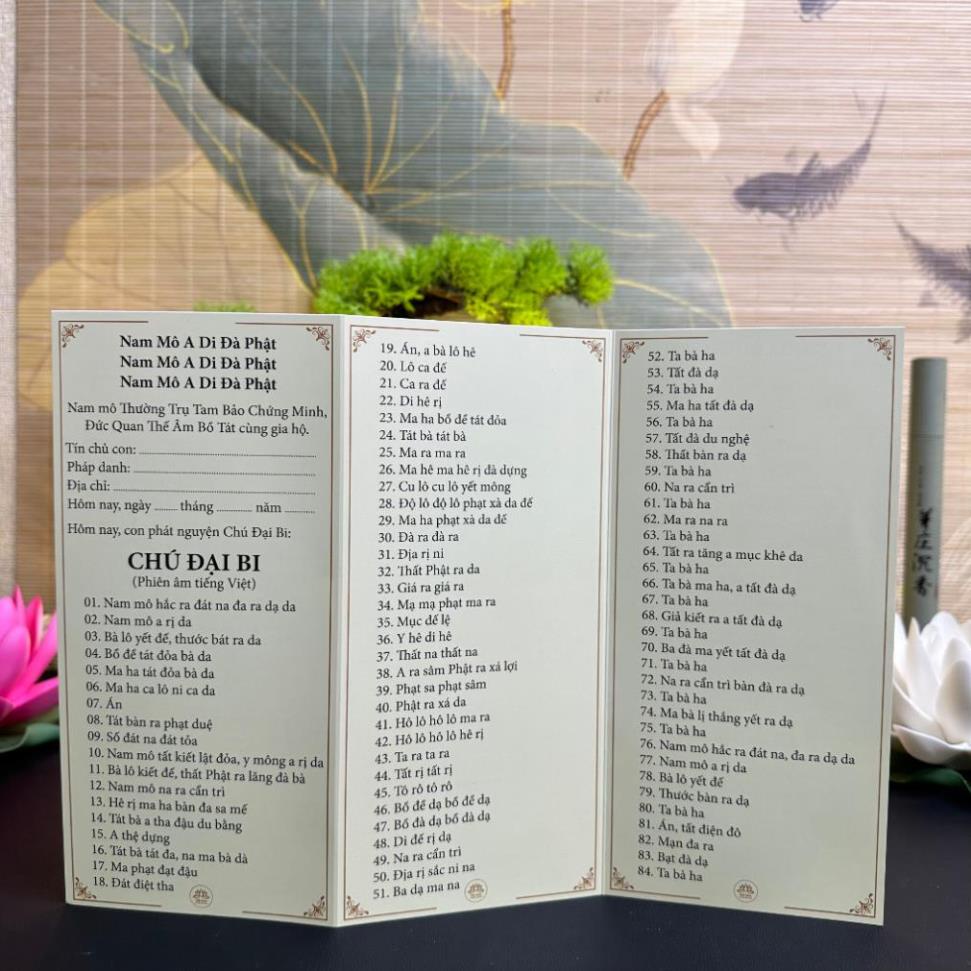 Nam Mô A Di Đà Phật
Nam Mô A Di Đà Phật
Nam Mô A Di Đà Phật
Nam mô Thường Trụ Tam Bảo Chứng Minh,
Đức Quan Thế Âm Bồ Tát cùng gia hộ.
Tín chủ con:
Pháp danh:
Địa chỉ:
Hôm nay, ngày ........ tháng ............ năm ..........
Hôm nay, con phát nguyện Chú Đại Bi:
CHÚ ĐẠI BI
(Phiên âm tiếng Việt)
01. Nam mô hắc ra đát na đa ra dạ da
02. Nam mô a rị da
03. Bà lô yết đế, thước bát ra da
04. Bồ đề tát đỏa bà da
05. Ma ha tát đỏa bà da
06. Ma ha ca lô ni ca da
07. Án
08. Tát bàn ra phạt duệ
09. Số đát na đát tỏa
10. Nam mô tất kiết lật đỏa, y mông a rị da
11. Bà lô kiết đế, thất Phật ra lăng đà bà
12. Nam mô na ra cẩn trì
13. Hê rị ma ha bàn đa sa mế
14. Tát bà a tha đậu du bằng
15. A thệ dựng
16. Tát bà tát đa, na ma bà dà
17. Ma phạt đạt đậu
18. Đát điệt tha
19. Án, a bà lô hê
20. Lô ca đế
21. Ca ra đế
22. Di hê rị
23. Ma ha bồ đề tát đỏa
24. Tát bà tát bà
25. Ma ra ma ra
26. Ma hê ma hê rị đà dựng
27. Cu lô cu lô yết mông
28. Độ lô độ lô phạt xà da đế
29. Ma ha phạt xà da đế
30. Đà ra đà ra
31. Địa rị ni
32. Thất Phật ra da
33. Giá ra giá ra
34. Mạ mạ phạt ma ra
35. Mục đế lệ
36. Y hê di hê
37. Thất na thất na
38. A ra sâm Phật ra xá lợi
39. Phạt sa phạt sâm
40. Phật ra xá da
41. Hô lô hô lô ma ra
42. Hô lô hô lô hê rị
43. Ta ra ta ra
44. Tất rị tất rị
45. Tô rô tô rô
46. Bồ đề dạ bồ đề dạ
47. Bồ đà dạ bồ đà dạ
48. Di đế rị dạ
49. Na ra cẩn trì
50. Địa rị sắc ni na
51. Ba dạ ma na
52. Ta bà ha
53. Tất đà dạ
54. Ta bà ha
55. Ma ha tất đà dạ
56. Ta bà ha
57. Tất đà du nghệ
58. Thất bàn ra dạ
59. Ta bà ha
60. Na ra cẩn trì
61. Ta bà ha
62. Ma ra na ra
63. Ta bà ha
64. Tất ra tăng a mục khê da
65. Ta bà ha
66. Ta bà ma ha, a tất đà dạ
67. Ta bà ha
68. Giả kiết ra a tất đà dạ
69. Ta bà ha
70. Ba đà ma yết tất đà dạ
71. Ta bà ha
72. Na ra cẩn trì bàn đà ra dạ
73. Ta bà ha
74. Ma bà lị thắng yết ra dạ
75. Ta bà ha
76. Nam mô hắc ra đát na, đa ra dạ da
77. Nam mô a rị da
78. Bà lô yết đế
79. Thước bàn ra dạ
80. Ta bà ha
81. Án, tất điện đô
82. Mạn đa ra
83. Bạt đà dạ
84. Ta bà ha